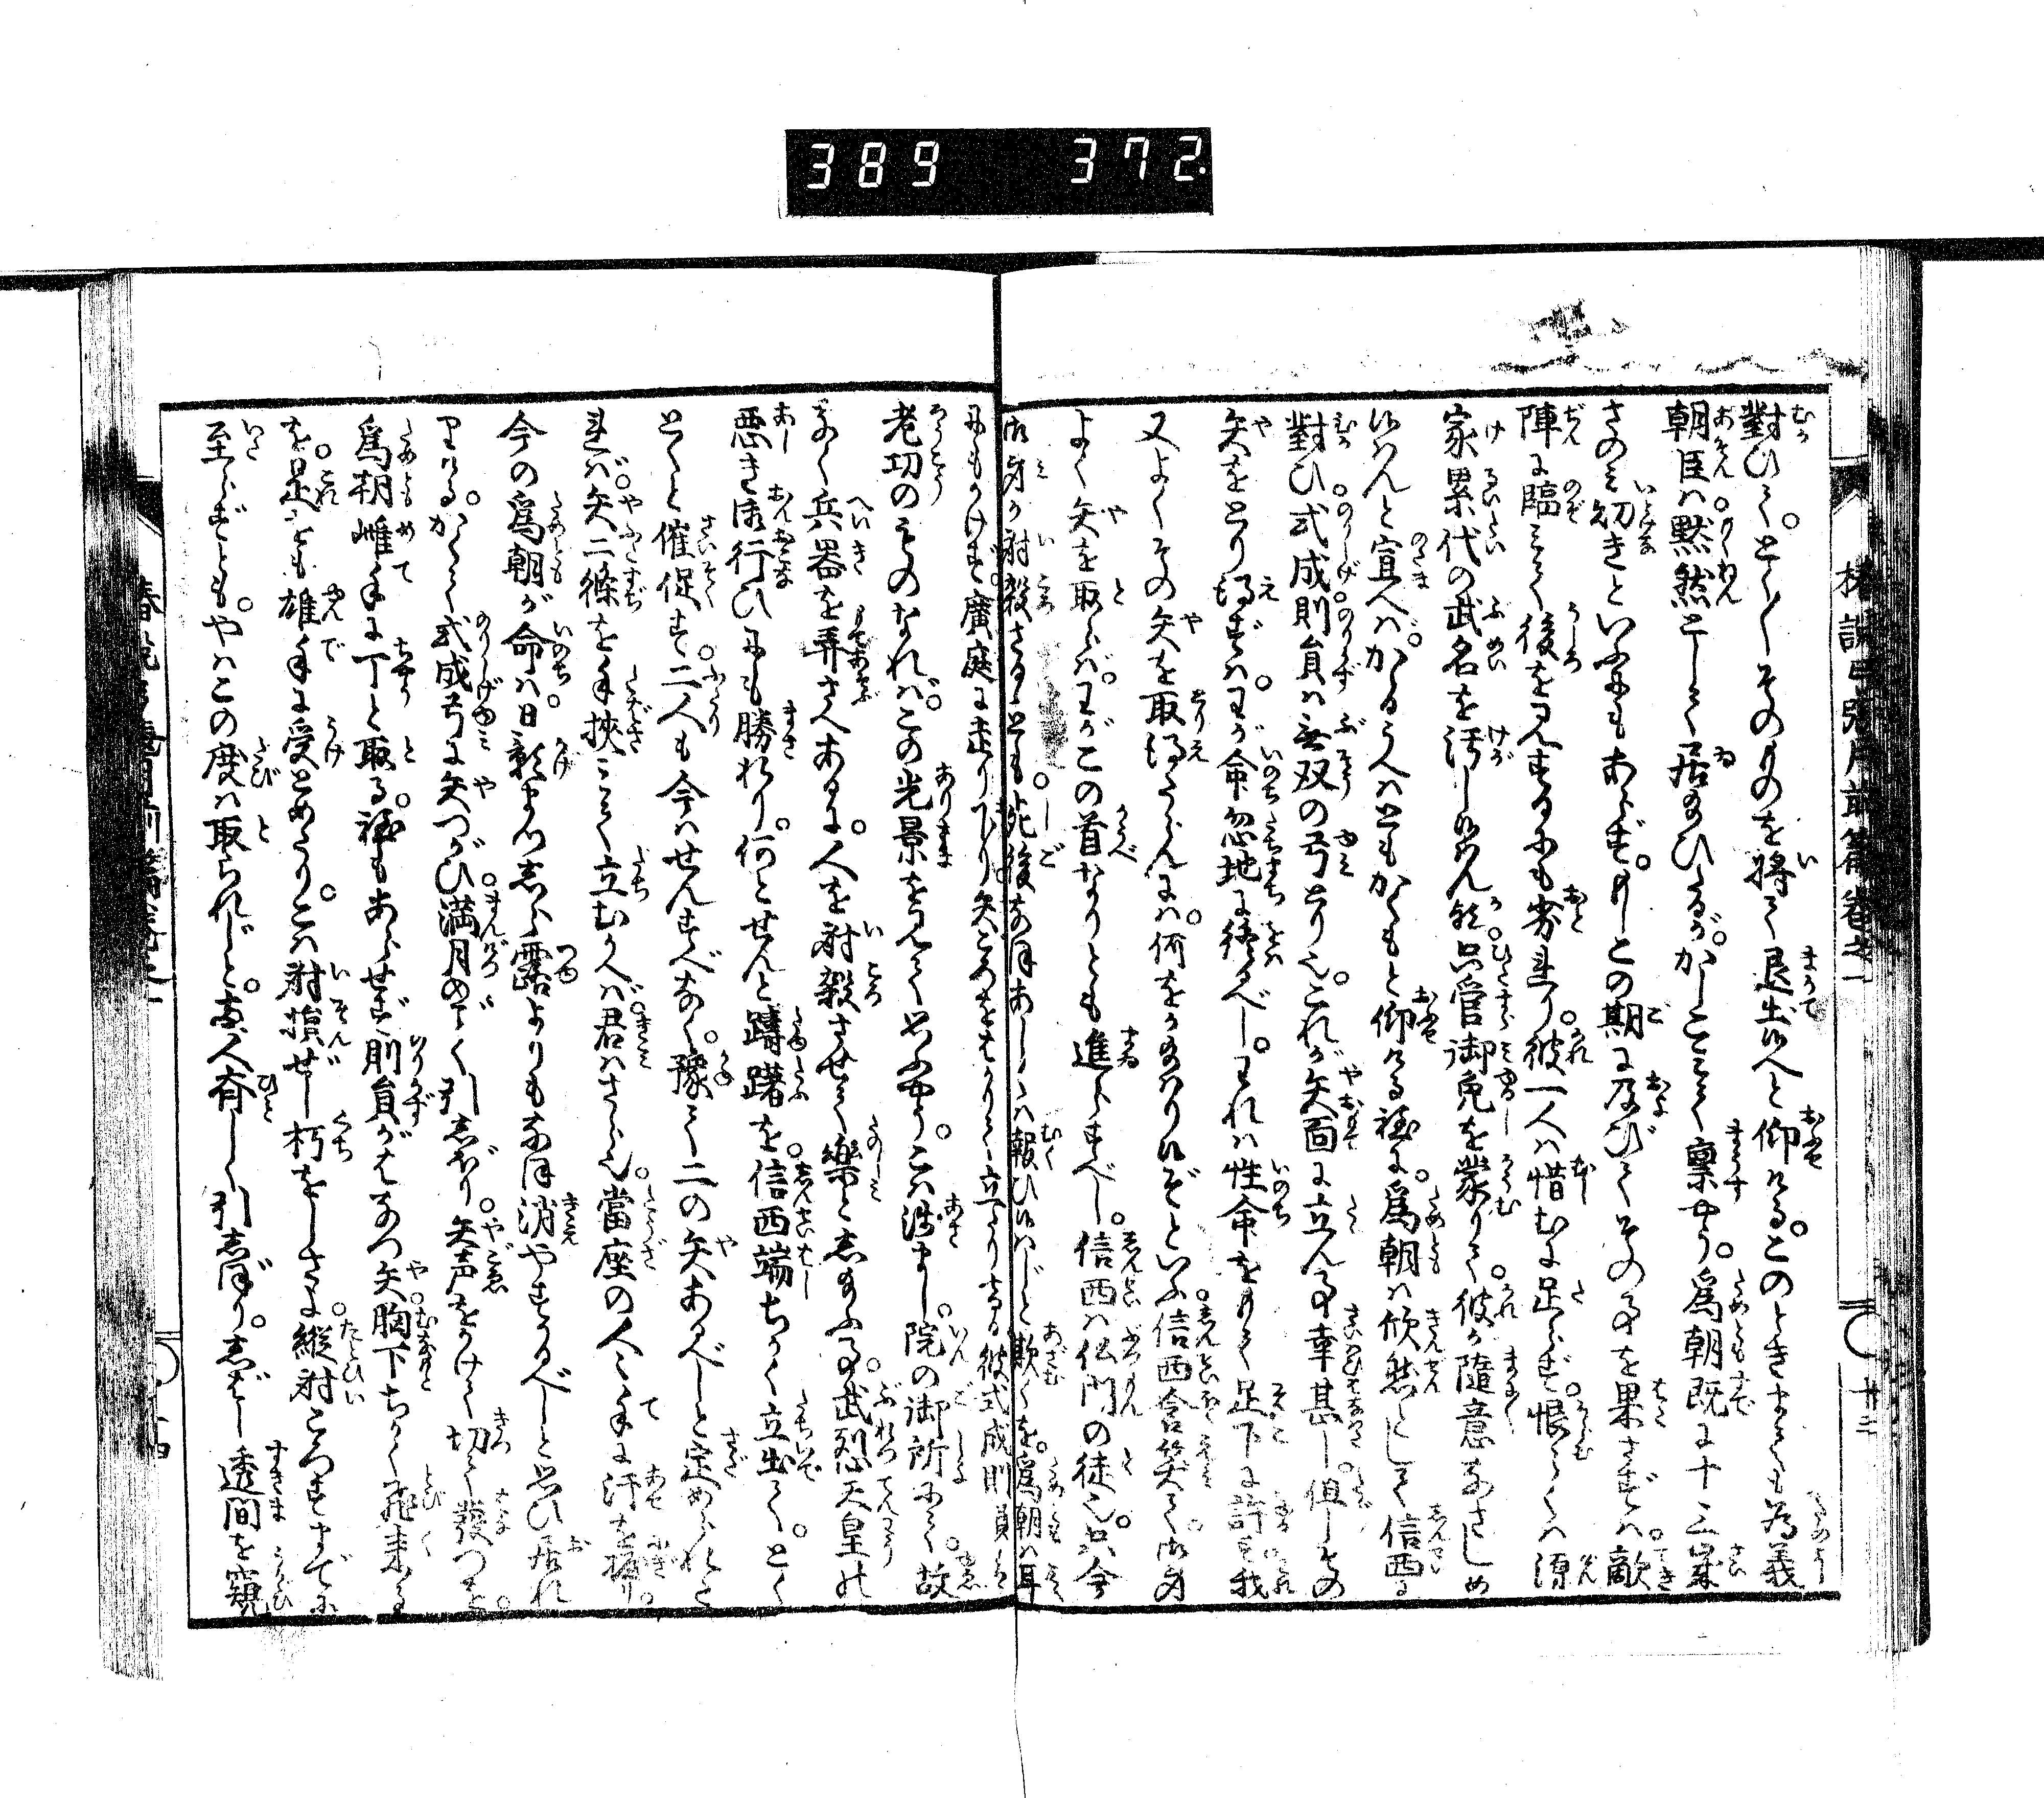 389 372
對ひて。とく／＼そのものを將て退出候へと仰ける。このときまでも為義
朝臣は默然として居給ひしが。かしこみて稟すやう。爲朝既に十三歳
さのみ幼きといふにもあらず。もしこの期に及びてその事を果さずは。敵
陣に臨みて後を見するにも劣れり。彼一人は惜むに足らず。恨らくは源
家累代の武名を汚し候はん歟。只管御免を蒙りて。彼が隨意なさしめ
候はんと宣へば。かるうへはともかくもと仰ける程に。爲朝は欣然として信西に
對ひ。式成則員は無双の弓とり也。これが矢面に立ん事幸甚し。但しその
矢をとり得ずは。わが命忽地に終るべし。われは性命をもて足下に許す。我
又よくその矢を取得たらんには。何をか給はり候ぞといふ。信西含笑て。御身
よく矢を取らば。わがこの首なりとも進らすべし。信西は仏門の徒也。只今
御身が射殺さるゝとも。死後なほあしくは報ひ候はじと欺くを。爲朝は耳
にもかけず。廣庭に走り下り。矢ころをはかりて立たりける。彼式成則員は
老功のものなれば。この光景を見て思ふやう。こは淺まし。院の御所にて。故
なく兵器を弄さへあるに。人を射殺させて樂とし給ふ事。武烈天皇の
悪き御行ひにも勝れり。何とせんと躊躇を。信西端ちかく立出て。とく
とくと催促す。二人も今はせんすべなく。豫て二の矢あるべしと定められた
れば。矢二條を手挾みて立むかへば。君はさら也。當座の人々手に汗を握り。
今の爲朝が命は。日影まつ玉しゐ露よりもなほ消やすかるべしと思ひ居れ
りける。かくて式成弓に矢つがひ。満月のごとく引しぼり。矢声をかけて切て發つを。
爲朝雌手に丁と取る。程もあらせず則員がはなつ矢。胸下ちかく飛來る
を。是をも雄手に受とめたり。こは射損ぜし朽をしさよ。縱射ころすまでに
至らずとも。やはこの度は取られじと。両人齊しく引しぼり。しばし透間を窺